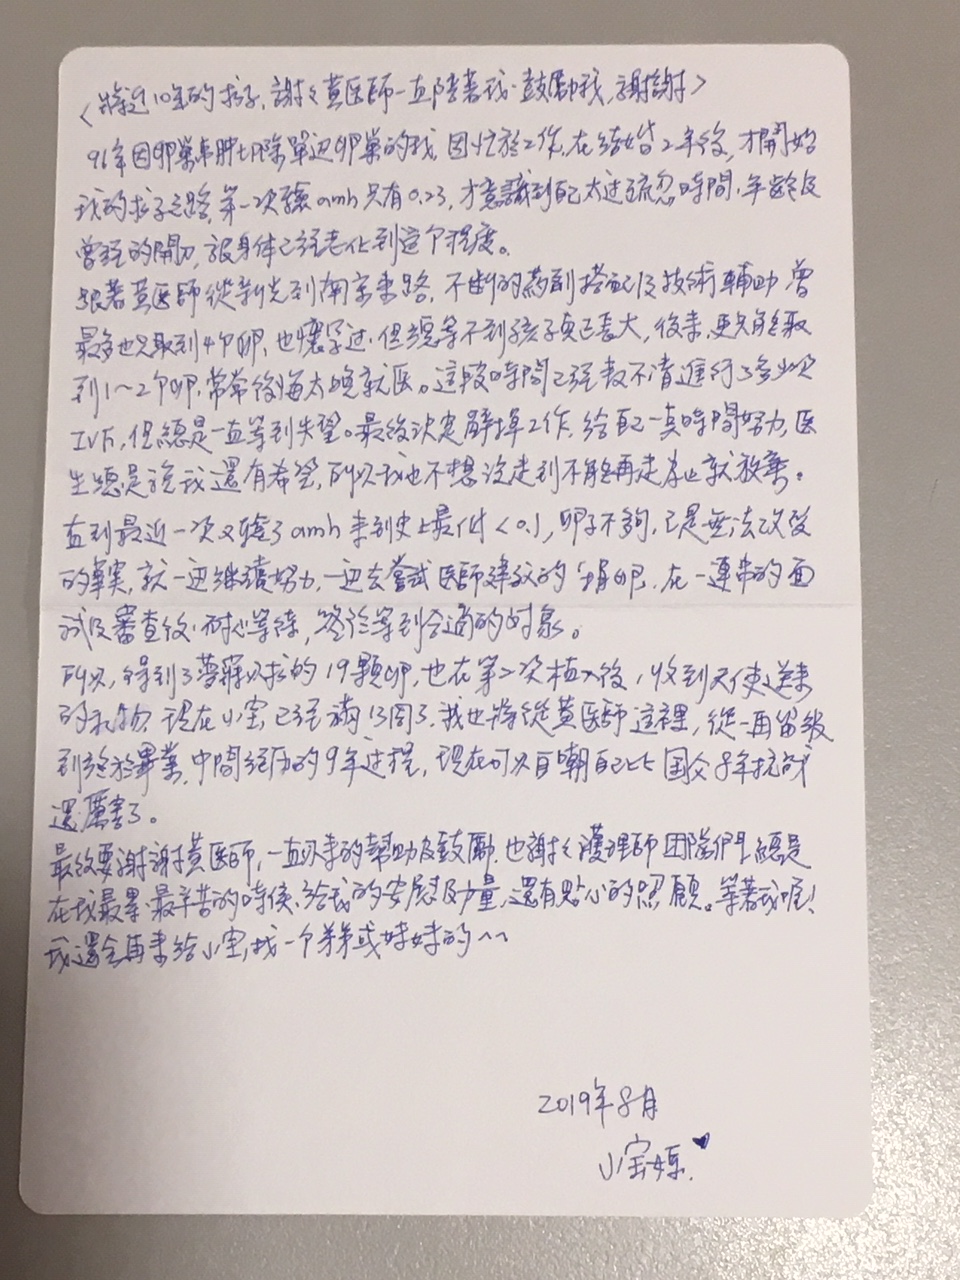 <將近10年的求子,謝謝黃医師一直陪著我、鼓勵我,謝謝>
96年因卵巢水肿切除單边卵巢的我,因忙於工作,在結婚2年後,才開始
我的求子之路,第一次驗amh只有0.23,才意識到自己太过疏忽時間、年齡及
曾經的開刀,讓身体已經老化到這个程度。
跟著黃医師從新光到南京東路,不断的藥劑搭配及技術輔助,曾
最多也只取到4个卵,也懷孕过,但總等不到孩子真正長大,後來,更只能取
到1~2个卵,常常後悔太晚就医。這段時間已經數不清進行了多少次
IVF,但總是一直等到失望。最後決定辭掉工作,給自己一点時間努力,医
生總是說我還有希望,所以我也不想沒走到不能再走為止就放棄。
直到最近一次又驗了amh來到史上最低<0.1,卵子不夠,已是無法改变
的事实,就一边繼續努力,一边去嘗試医師建議的借卵,在一連串的面
試及審查後,耐心等待,終於等到合適的对象。
所以,得到了夢寐以求的19顆卵,也在第二次植入後,收到天使送來
的礼物,現在小宝已經滿13周了。我也將從黃医師這裡,從一再留級
到終於畢業,中間經历的9年过程,現在可以自嘲自己比国父8年抗战
還厲害了。
最後要謝謝黃医師,一直以來的幫助及鼓勵,也謝謝護理師团隊們,總是
在我最累、最辛苦的時侯,給我的安慰及力量,還有貼心的照顧。等著我喔!
我還会再來給小宝找一个弟弟或妹妹的^^
2019年8月
小宝媽.